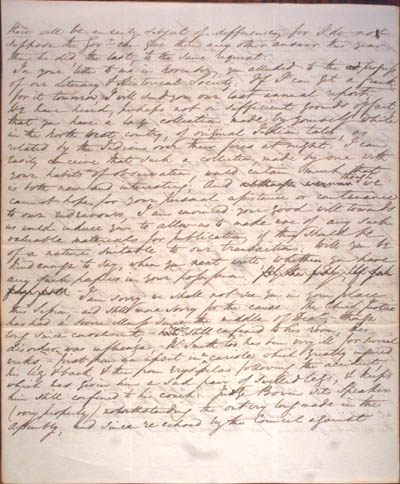 there will be an early subject of difference, for I do not
suppose the Govr can give them any other answer this year
than he did the last, to the same request.
In your letter to me in November, you alluded to the
of our Literary & Historical Society. If I can get a frank
for it tomorrow I will send you our last annual report,
by have been, perhaps upon sufficient grounds of fact,
that you have a large collection made by yourself while
in the North West country, of original Indian tales, as
related by the Indians over their fires at night. I can
easily conceive that such a collection, made by one with
your habits of observation, would contain much that
is both new and interesting; And though we
cannot hope for your personal assistance or countenance
to our endeavours, I am convinced your good will towards
us would induce you to allow us to make use of any such
valuable materials for publication, if they should be
of a nature suitable to our transactions. Will you be
kind enough to say, when you next write whether you have
any such papers in your possession.
I am sorry we shall not see you in your place
this Session, and still more sorry for the cause. The Chief Justice
has had a severe illness since the middle of Decr, & though
long since convalescent is still confined to his room, his
disorder was
Mr Smith too has been very ill for several
weeks, – first from an upset in a cariole which greatly injured
his leg & back & then from erysipelas following the accident
which has given him a sad pair of swelled legs, & keeps
him still confined to his couch. Judge Bowen sits Speaker
(very properly) notwithstanding the outcry long made in the
Assembly, and since re echoed by the Council against